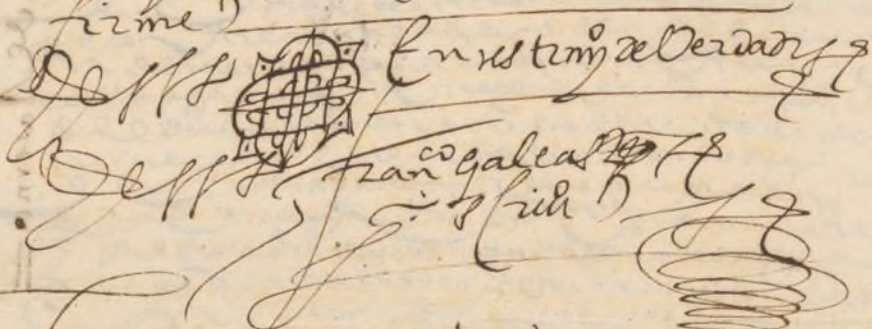 firme
En testimº de Verdad
franco galeas
scriuº